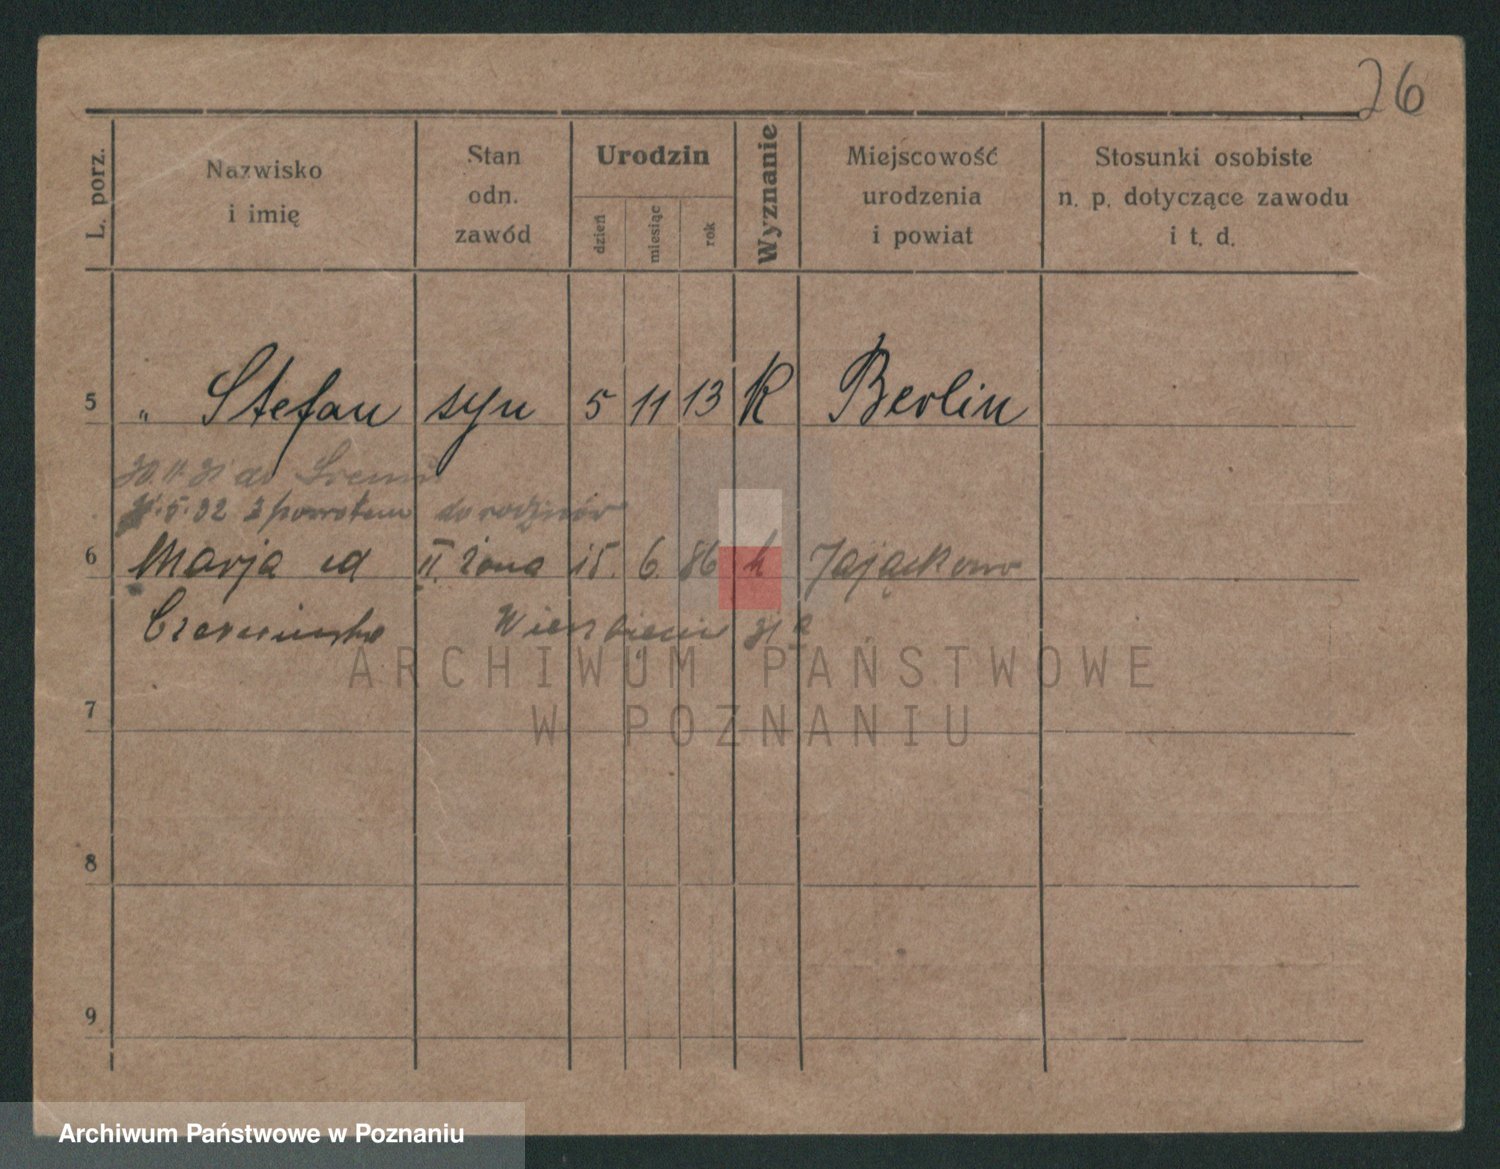 26
L. porz.
Nazwisko
i imię
Stan
odn.
zawód
Urodzin
dzień
miesiąc
rok
Wyznanie
Miejscowość
urodzenia
i powiat
Stosunki osobiste
n. p. dotyczące zawodu
i t. d.
5 " Stefan syn 5 11 13 K Berlin
do Śremu
5.32 z powrotem do rodziców
6 Marja II. żona 15. 6. 86 k
7
8
9
ARCHIWUM PAŃSTWOWE
W POZNANIU
Archiwum Państwowe w Poznaniu